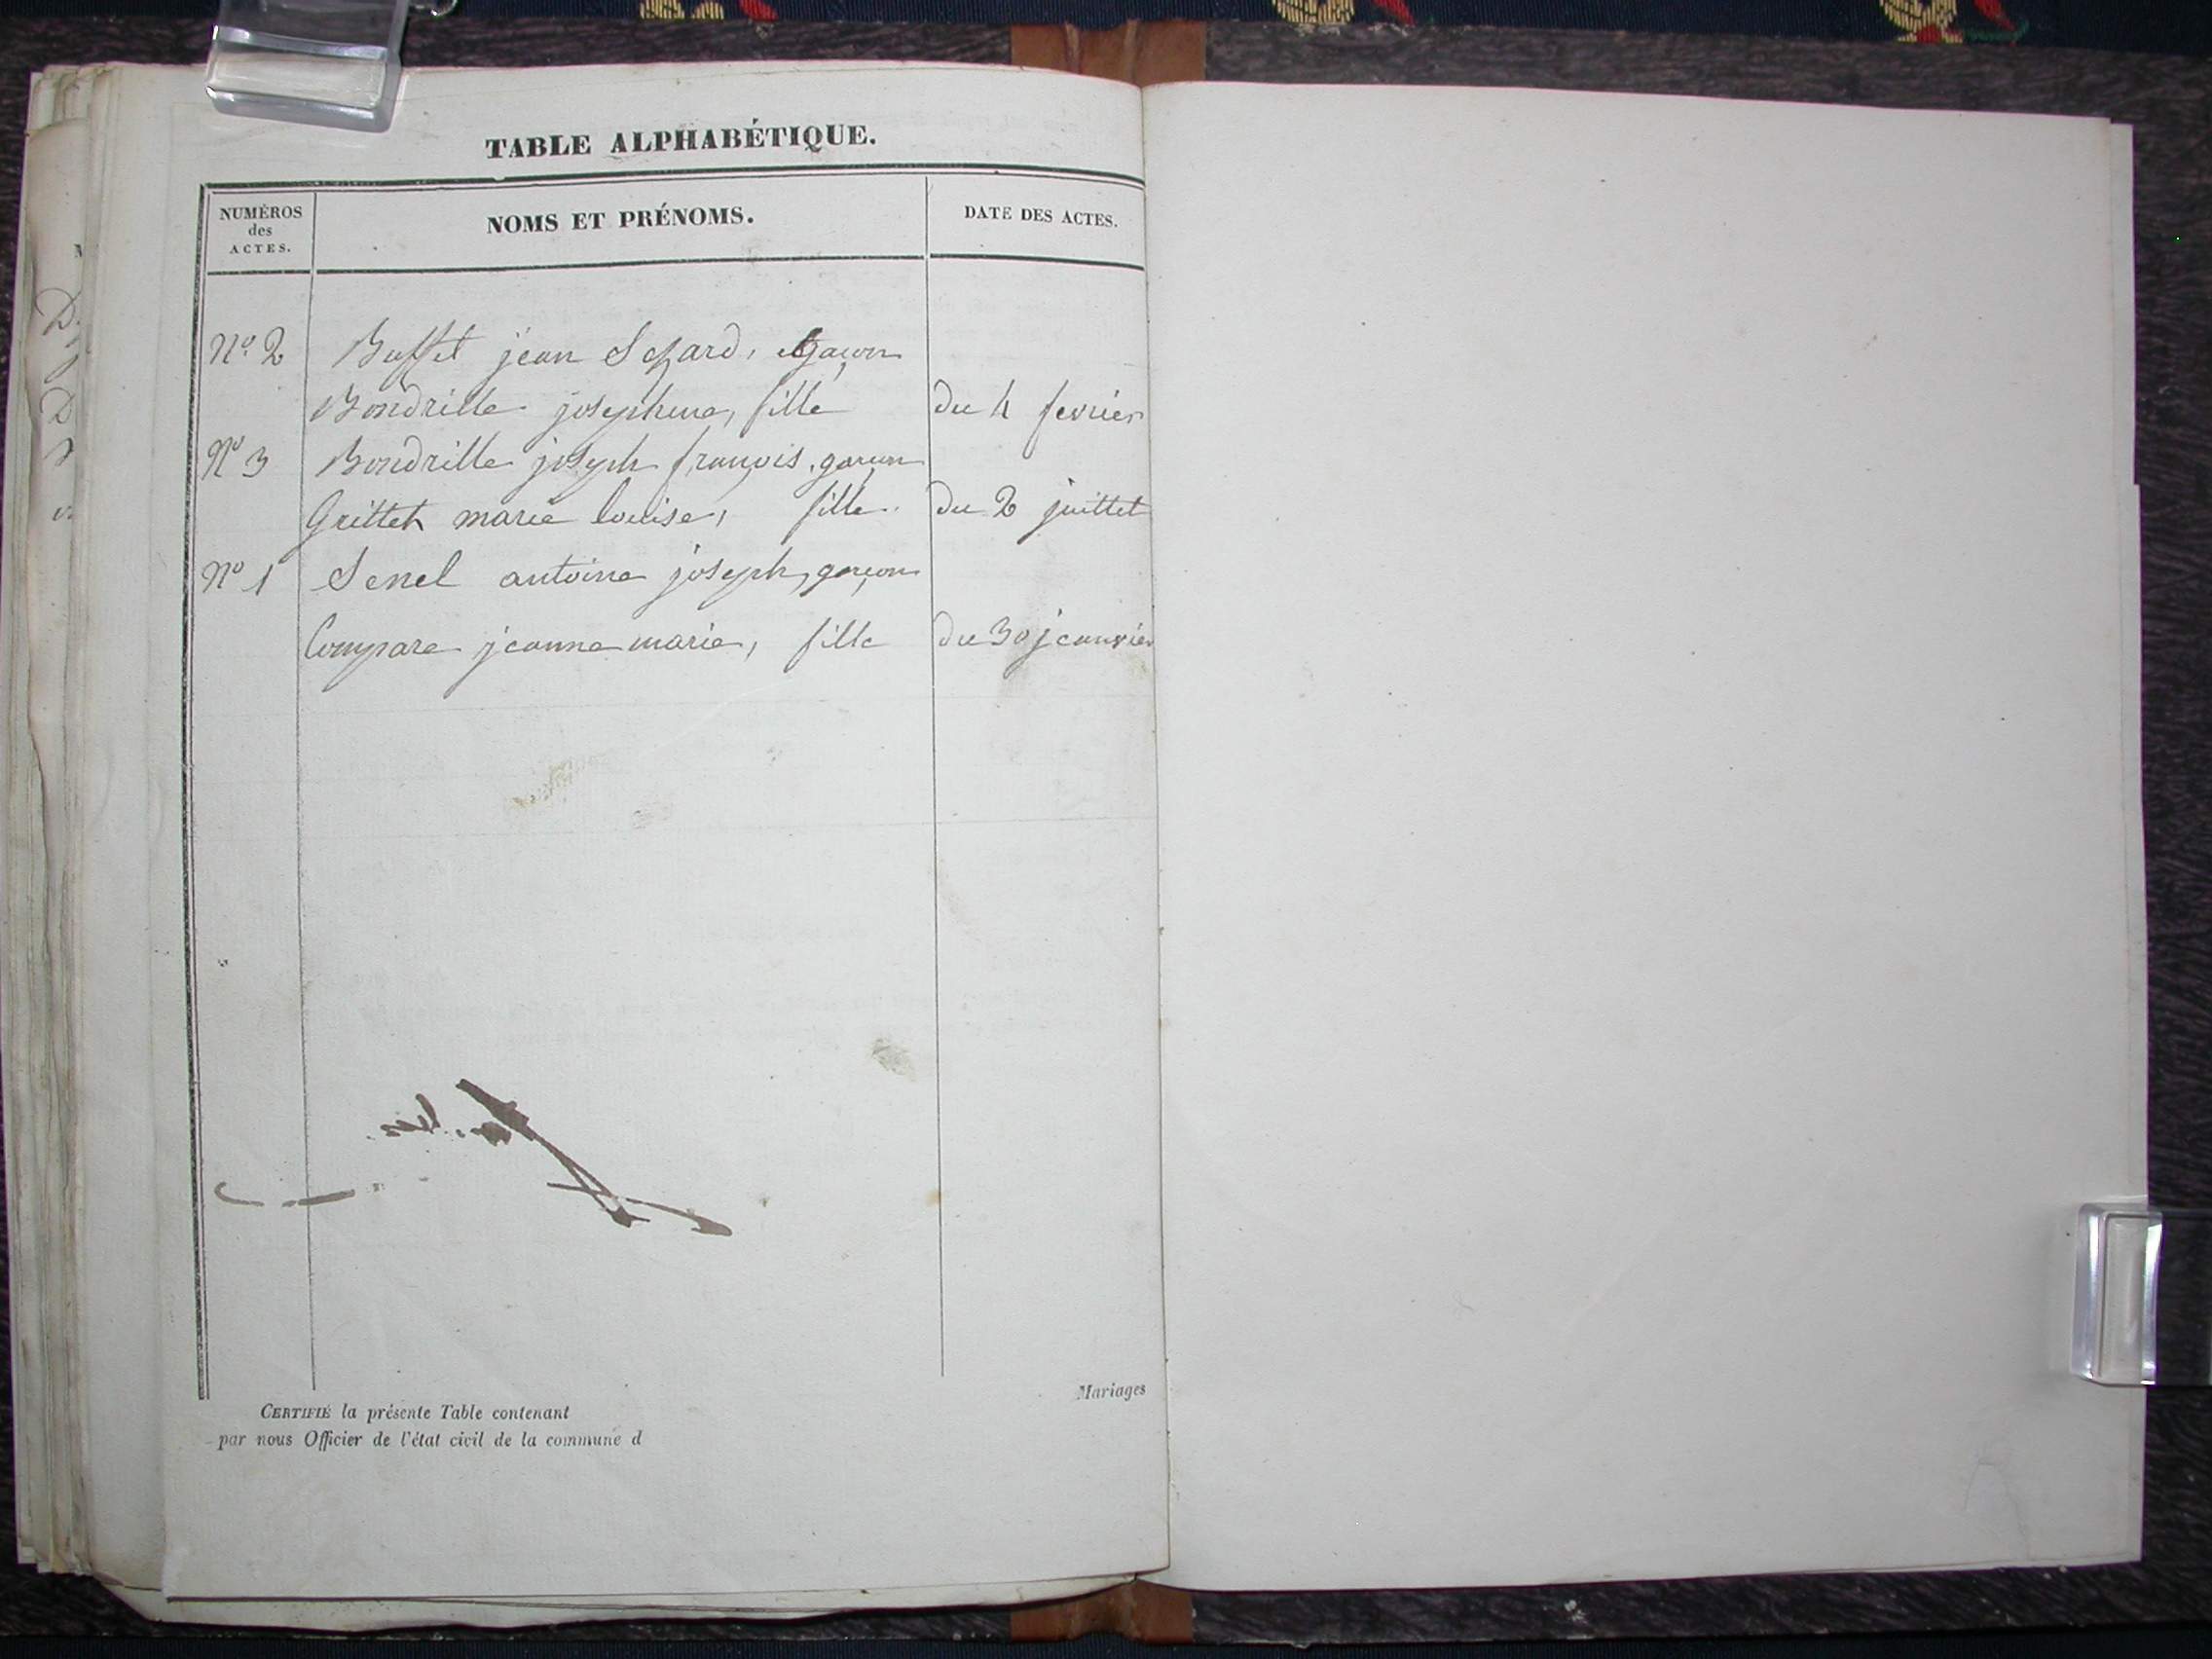 TABLE ALPHABÉTIQUE.
NUMÉROS des ACTES.
NOMS ET PRÉNOMS.
DATE DES ACTES.
No. 2 Buffet jean garçon
Bondrille josephine, fille du 4 fevrier
No 3 Bondrille joseph françois, garçon
Grillet marie louise, fille. du 2 juillet
No 1 Senel antoine joseph, garçon
Compare jeanne marie, fille du 30 jeanvier
Mariages
CERTIFIÉ la présente Table contenant
par nous Officier de l'état civil de la commune d